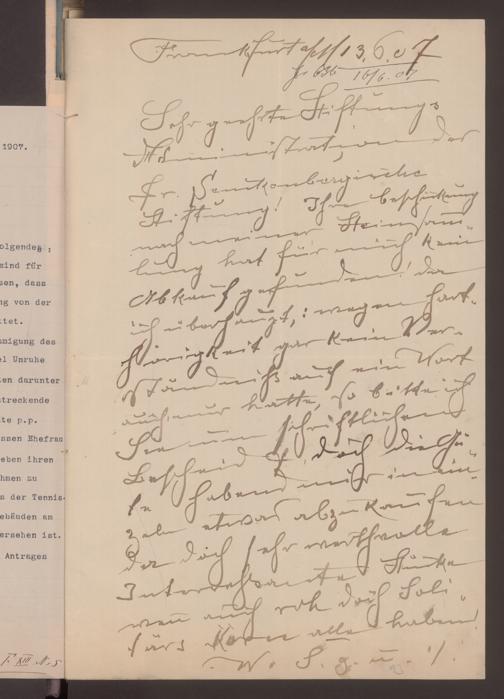 1907.
olgendes ;
sind für
sen, dass
ng von der
ktet.
nmigung des
el Unruhe
ten darunter
streckende
te p.p.
ssen Ehefrau
eben ihren
hmen zu
s der Tennis-
ebäuden an
ersehen ist.
Antrages
Frankfurt a/M 13.6.07
16/6.07
Sehr geehrte Stiftungs
Administration der
Dr. Senckenbergische
Stiftung! Ihre beschickung
nach meiner Steinsam
lung hat für mich kein
Abkauf gefunden! da
ich überhaupt, : wegen Hart-
hörigkeit gar kein Ver-
ständniß auch ein Wort
auch nur hatte, so bitte ich
Sie um schriftlichen
Bescheid ob doch die Gü
te haben mir in ein
zeln etwas abzukaufen
da doch sehr werthvolle
Interessante Stücke
wen auch roh doch
alle haben!